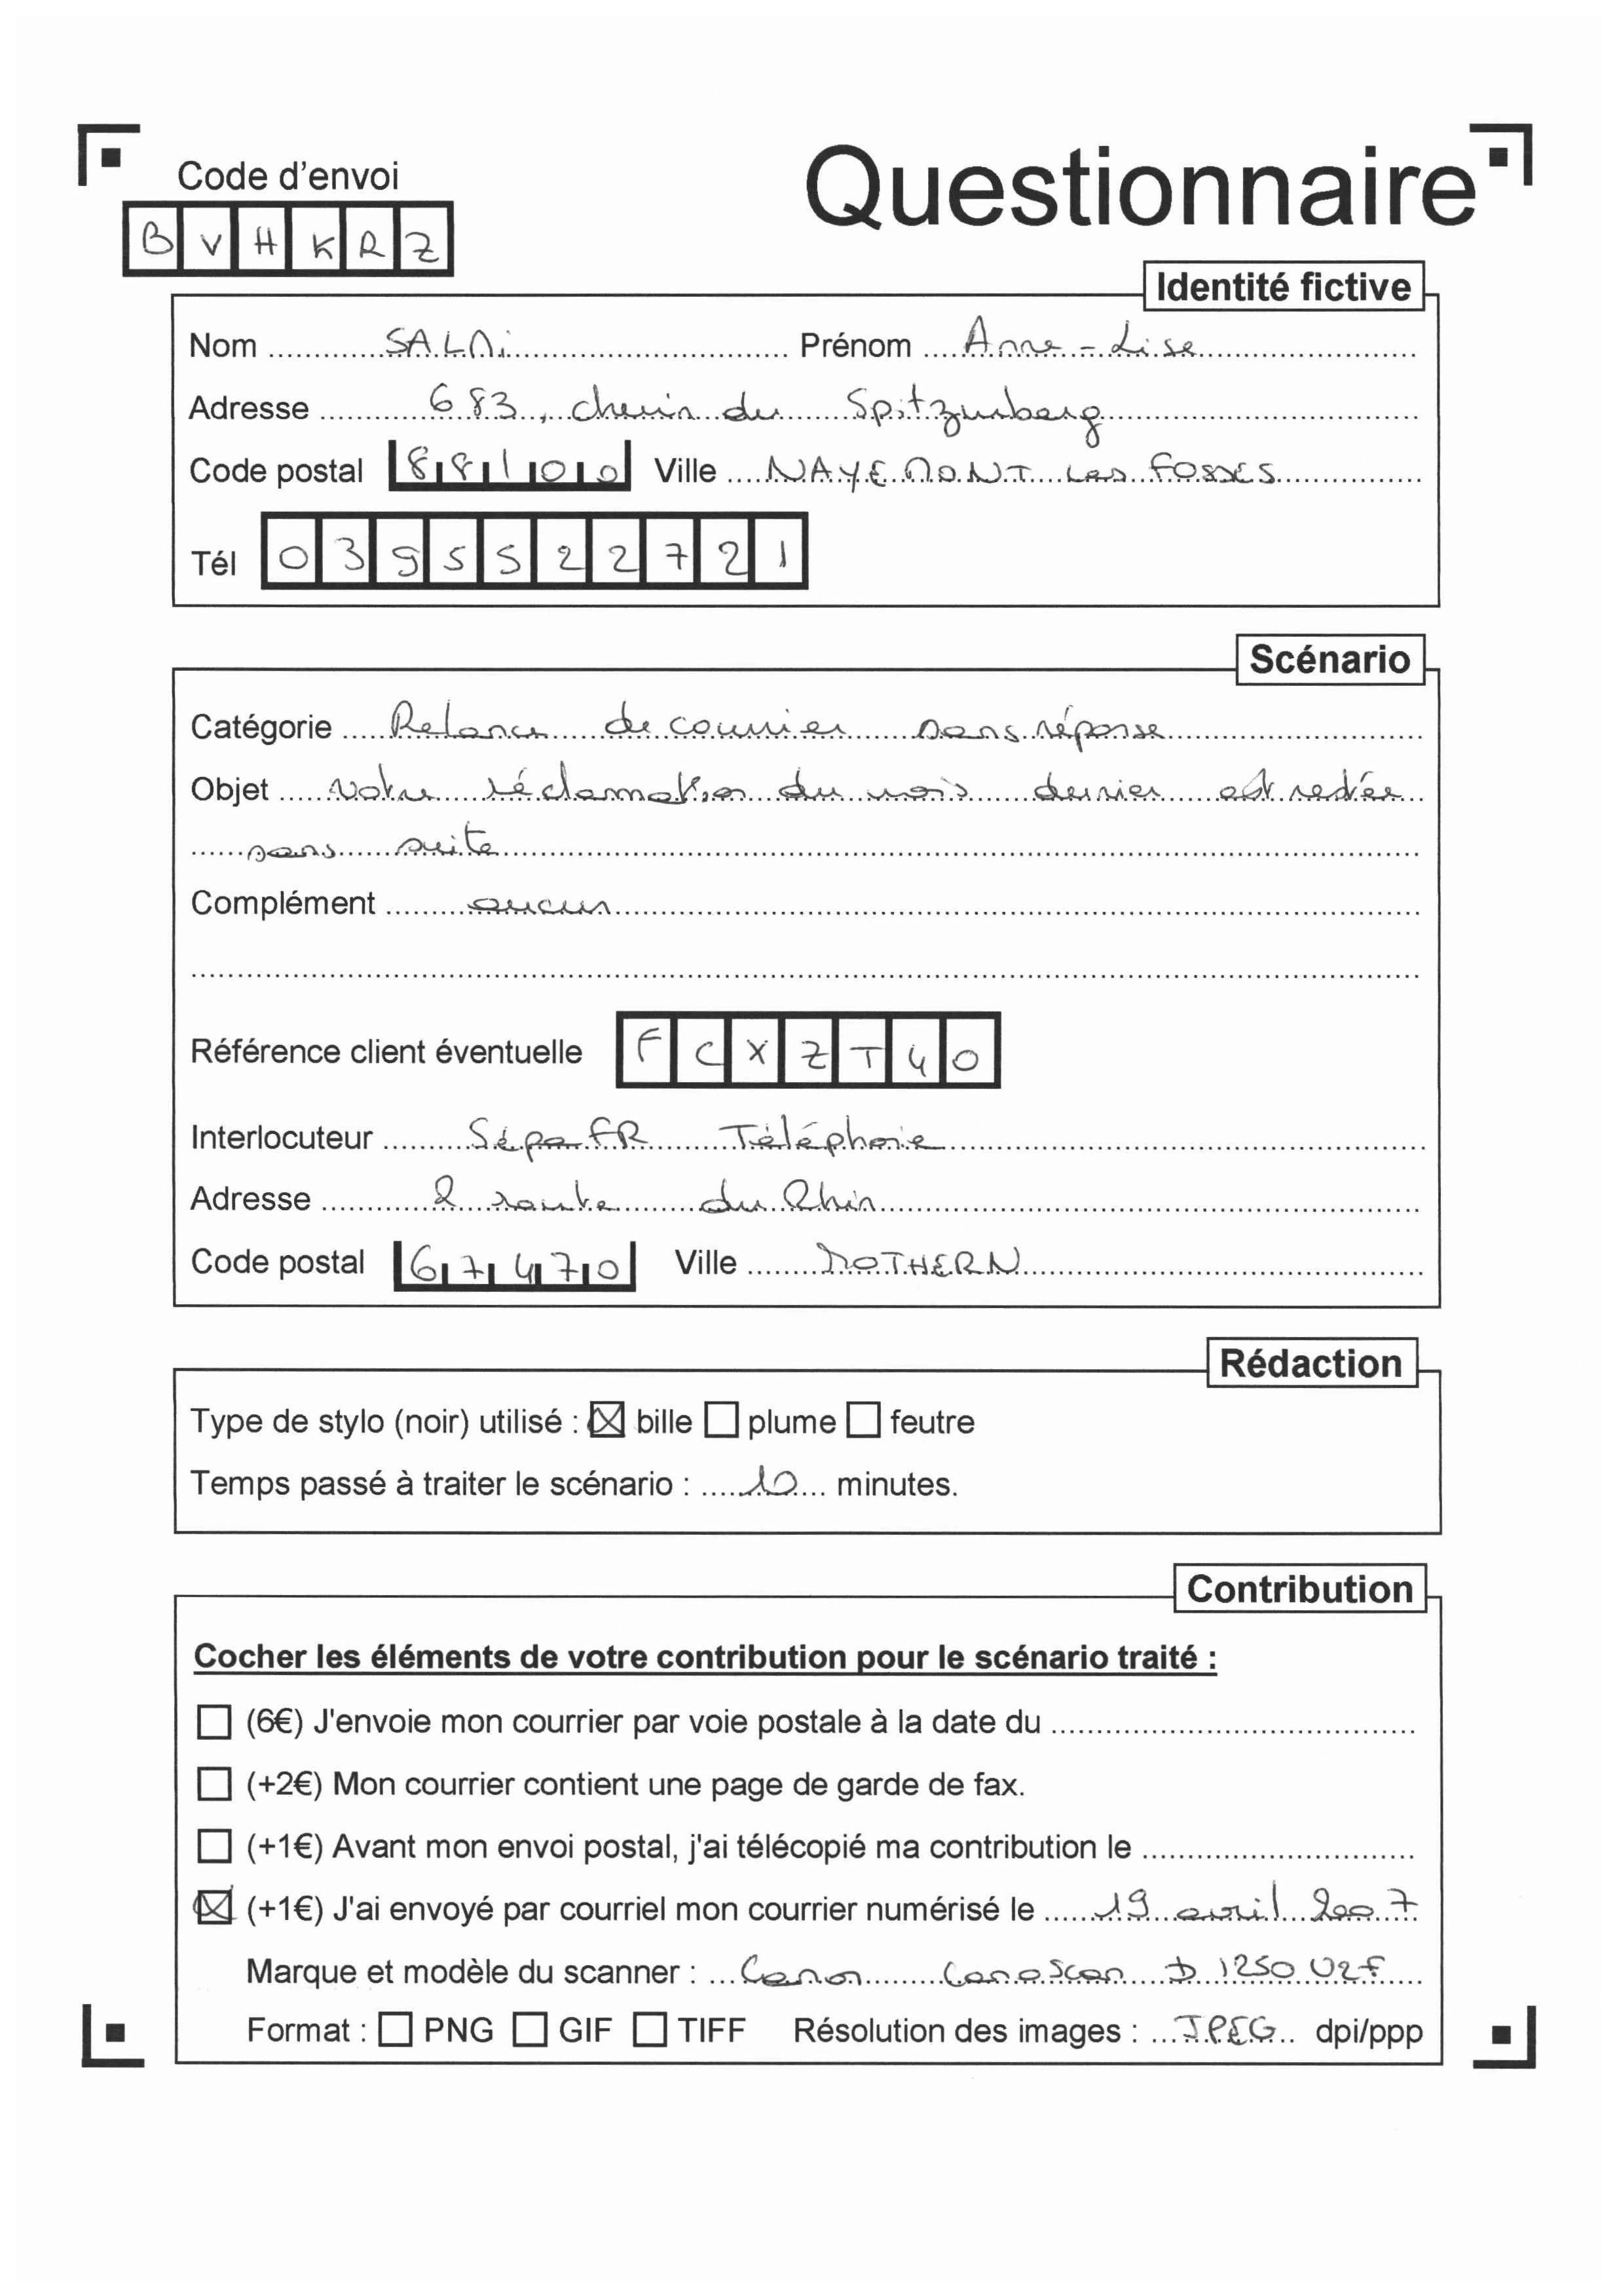 Code d'envoi
Questionnaire
B V H K R Z
Identité fictive
Nom SALMi Prénom Anne-Lise
Adresse 683, chemin du Spitzemberg
Code postal 88100 Ville NAYEMONT Les FOSSES
Tél 0395522721
Scénario
Catégorie Relance de courrier sans réponse
Objet Votre réclamation du mois dernier est restée
sans suite
Complément aucun
Référence client éventuelle F C X Z T 4 0
Interlocuteur SépaFR Téléphonie
Adresse 2 route du Rhin
Code postal 67470 Ville MOTHERN
Rédaction
Type de stylo (noir) utilisé : ☒ bille ☐ plume ☐ feutre
Temps passé à traiter le scénario : 10 minutes.
Contribution
Cocher les éléments de votre contribution pour le scénario traité :
☐ (6€) J'envoie mon courrier par voie postale à la date du
☐ (+2€) Mon courrier contient une page de garde de fax.
☐ (+1€) Avant mon envoi postal, j'ai télécopié ma contribution le
☒ (+1€) J'ai envoyé par courriel mon courrier numérisé le 19 avril 2007
Marque et modèle du scanner : Canon CanoScan D 1250 U2F
Format : ☐ PNG ☐ GIF ☐ TIFF Résolution des images : JPEG dpi/ppp